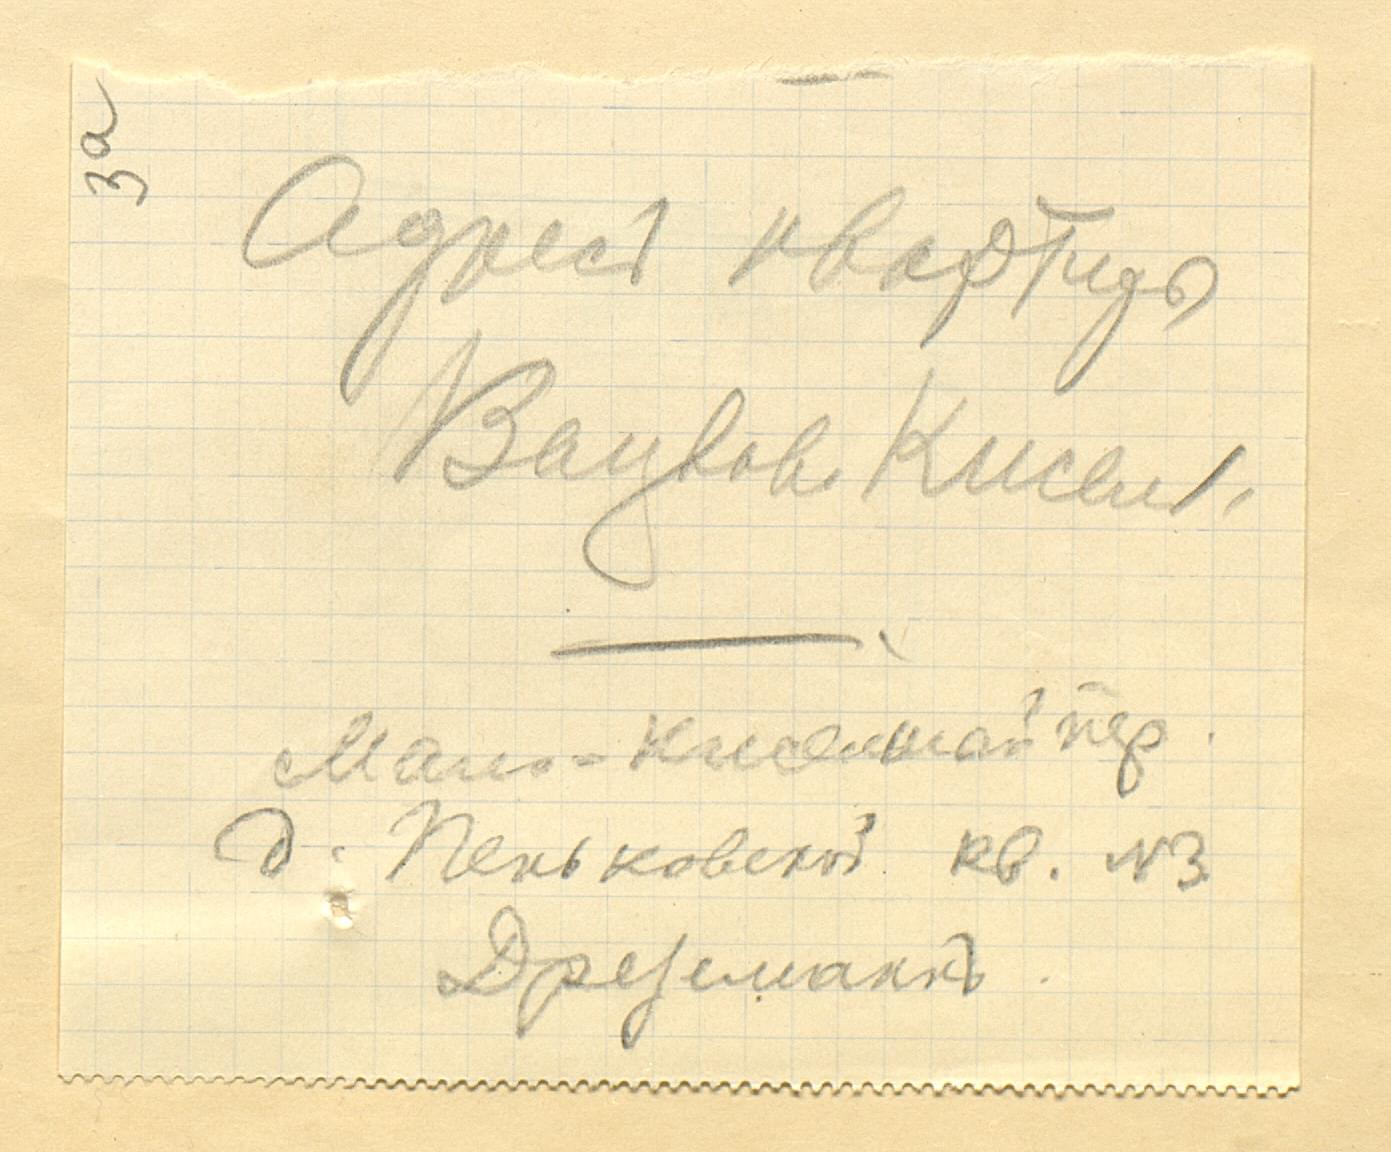 3а
Адрес квартиры
Вацлов. Кисел.
Мало-Кисельный пер.
д. Пеньковской кв. №3
Дреземанъ.